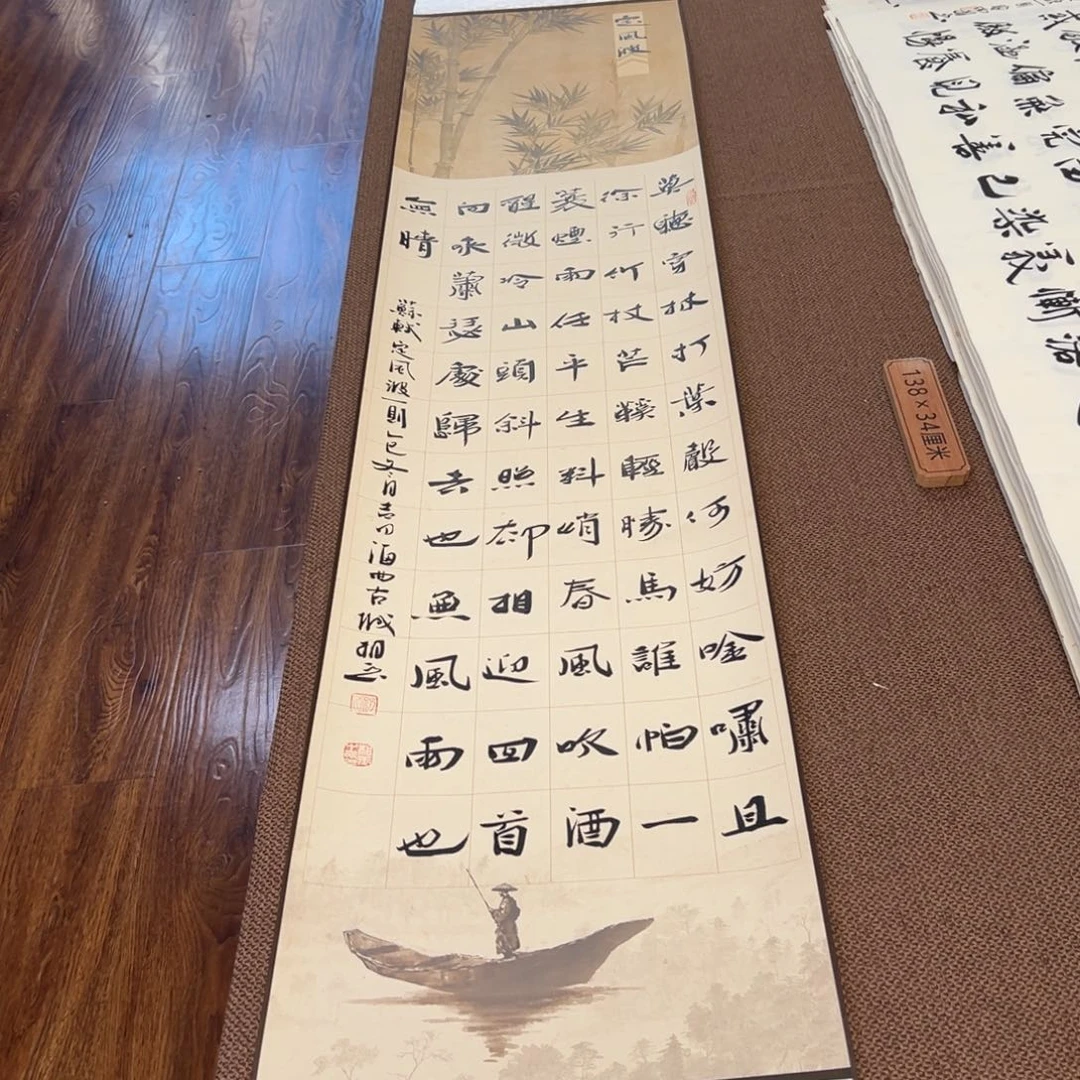 定風波
莫聽穿林打葉聲何妨唫嘯且
徐行竹杖芒鞵輕勝馬誰怕一
蓑煙雨任平生料峭春風吹酒
醒微冷山頭斜照卻相迎回首
向來蕭瑟處歸去也無風雨也
無晴
蘇軾定風波一則乙巳冬月吉日海西古城
138×34厘米